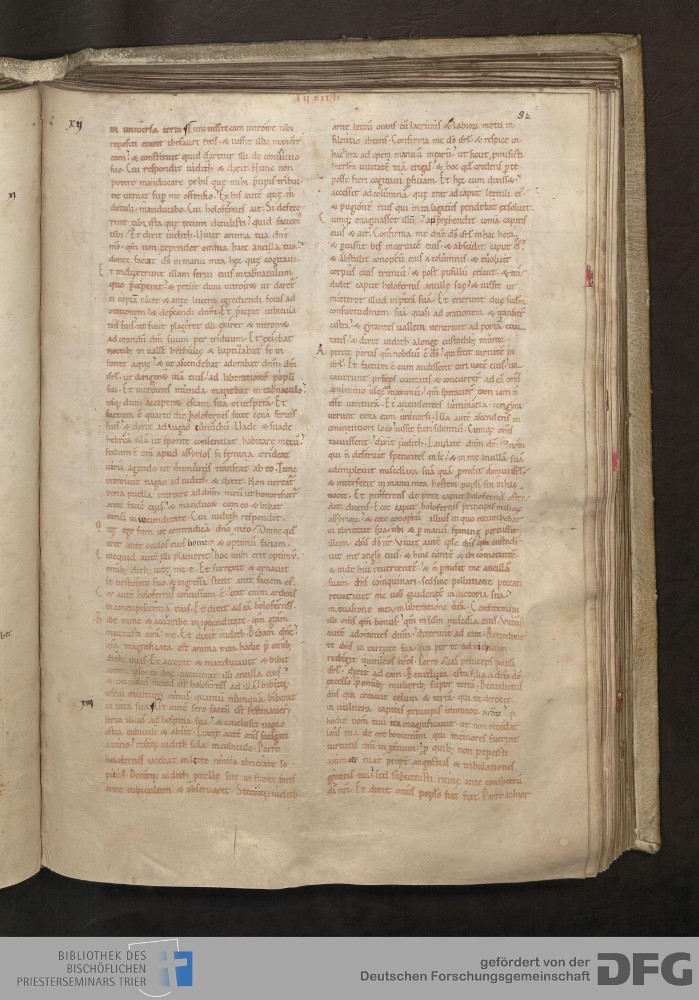 IUDITH
82
XII
in universa terra. Tunc iussit eam introire ubi
repositi erant thesauri eius. & iussit illic manere
eam. & constituit quid daretur illi de convivio
suo. Cui respondit iudith & dixit. Nunc non
potero manducare
ne veniat sup me offensio. Ex his autē que m
detuli. manducabo. Cui holofernes ait. Si defece
rint tibi ista que tecum detulisti. quid faciem
tibi. Et dixit iudith. Vivit anima tua dne
ms. qm non expendet omnia hec ancilla tua.
donec faciat ds in manu mea. hec que cogitavi.
Et induxerunt illam servi eius in tabnaculum
quo preceperat. & petiit dum introiret ut daret
ei copia nocte & ante lucem egrediendi foras ad
orationem. & deprecandi dnm. Et precepit cubicula
riis suis ut sicut placeret illi exiret & introiret
ad orandū dm suum per triduum. Et exiebat
noctib in valle bethulie & baptizabat se in
fonte aque. & ut ascendebat adorabat dnm dm
isrl. ut dirigeret via eius. ad liberatione popli
sui. Et introiens munda manebat in tabnaculo.
usq dum acciperet escam sua in vespera. Et
factum ē quarto die holofernes fecit cena servis
suis. & dixit ad vagao eunuchū. Vade & suade
hebrea illa ut sponte consentiat habitare mecū.
fedum ē eni apud assyrios si femina irrideat
virū agendo ut immunis transeat ab eo. Tunc
introivit vagao ad iudith & dixit. Non vereat
bona puella introire ad dnm meū ut honorificet
ante facie eius. & manducet cum eo & bibat
vinū in iocunditate. Cui iudith respondit.
Que ego sum ut contradica dno meo. Omne qd
erit ante oculos eius bonum & optimū faciam.
Quicquid autē illi placuerit. hoc mihi erit optimū
omib dieb vite mee. Et surrexit & ornavit
se vestimto suo. & ingressa stetit ante faciem ei.
Cor autē holoferni concussum ē. erat enim ardens
in concupiscentia eius. Et dixit ad ea holofernes.
Bibe nunc & accumbe in iocunditate. qm gram
invenisti cora me. Et dixit iudith. Bibam dne.
qm magnificata est anima mea hodie p omib
dieb meis. Et accepit & manducavit & bibit
cora ipso ea que paraverat illi ancilla eius.
& iocundus factus est holofernes ad illa. bibitq
vinū multum nimis quantū nunquā biberat
XIII
in vita sua. Ut autē sero factū est festinaver
servi illius ad hospitia sua. & conclusit vagao
ostia cubiculi & abiit. Erant autē oms fatigati
a vino. eratq iudith sola in cubiculo. Porro
holofernes iacebat in lecto nimia ebrietate so
pitus. Dixitq iudith puelle sue ut staret foris
ante cubiculum & observaret. Stetitq iudith
ante lectū orans cū lacrimis & labiorū motu in
silentio dicens. Confirma me dne ds isrl. & respice in
hac hora ad opera manuū mearū. ut sicut pmisisti
hierlm civitate tua erigas. & hoc qd credens p te
posse fieri cogitavi pficiam. Et hec cum dixisset.
accessit ad columna. que erat ad caput lectuli ei.
& pugione eius qui in ea ligatus pendebat exsolvit.
Cumq evaginasset illū. apprehendit coma capitis
eius & ait. Confirma me dne ds isrl in hac hora.
& percussit bis in cervice eius & abscidit caput ei.
& abstulit conopeū eius a columnis. & evolvit
corpus eius truncū. & post pusillū exivit. & tra
didit caput holofernis ancille sue. & iussit ut
mitteret illud in pera sua. Et exierunt due scdm
consuetudinem sua quasi ad orationem. & transiert
castra. & girantes vallem venerunt ad porta civi
tatis. & dixit iudith a longe custodib muroru.
Aperite portas qm nobiscū ē ds. qui fecit virtute in
isrl. Et factum ē cum audissent viri voce eius. vo
caverunt presbros civitatis & concurrer ad ea oms
a minimo usq ad maximū. qm speraver eam iam n
esse ventura. Et accendentes luminaria. congyra
verunt circa eam universi. Illa autē ascendens in
eminentiori loco iussit fieri silentiū. Cumq oms
tacuissent. dixit iudith. Laudate dnm dm nrm
qui n deseruit sperantes in se. & in me ancilla sua
adimplevit misedam sua qua promisit domui isrl.
& interfecit in manu mea hoste popli sui in hac
nocte. Et proferens de pera caput holofernis osten
dit dicens. Ecce caput holofernis principis militie
assyriorū. & ecce conopeū illius in quo recumbebat
in ebrietate sua. ubi & p manū femine percussit
illum dns ds nr. Vivit autē ipse dns qm custodi
vit me angls eius & hinc eunte & ibi commorante
& inde huc revertente. & n pmisit me ancillā
suam dns coinquinari. sed sine pollutione peccati
revocavit me vob gaudente in victoria sua.
in evasione mea. in liberatione vra. Confitemini
illi oms qm bonus. qm in sclm miscdia eius. Universi
autē adorantes dnm. dixerunt ad eam. Benedixit
te dns in virtute sua. quia per te ad nichilum
redegit inimicos nros. Porro ozias princeps popli
isrl. dixit ad eam. Benedicta es tu filia a dno do
excelso p omib mulierib super terra. Benedictus
dns qui creavit celum & terra. qui te direxit
in vulnera capitis principis inimicorū nrorū. q
hodie nom tuū ita magnificavit. ut non recedat
laus tua de ore hominum qui memores fuerint
virtutis dni in eternū. p quib non pepcisti
anime tue propt angustias & tribulationes
generis tui. sed subvenisti ruine ante conspectū
di nri. Et dixit omis popls fiat fiat. Porro achior
BIBLIOTHEK DES
BISCHÖFLICHEN
PRIESTERSEMINARS TRIER
gefördert von der
Deutschen Forschungsgemeinschaft
DFG